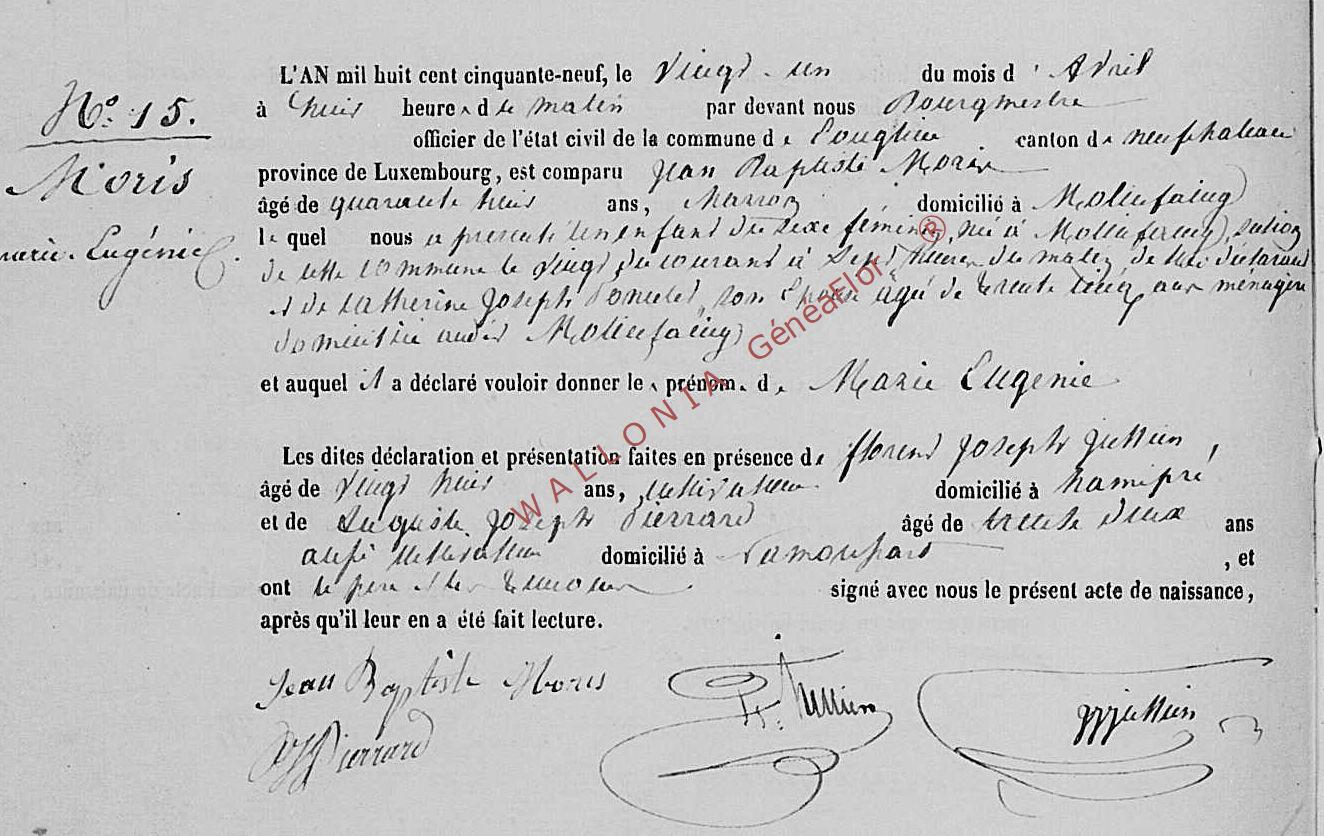 L'AN mil huit cent cinquante-neuf, le Vingt-un du mois d'Avril
N° 15.
à huit heures du matin par devant nous Bourgmestre
officier de l'état civil de la commune de Longlier canton de neufchateau
Moris
province de Luxembourg, est comparu Jean Baptiste Moris
âgé de quarante huit ans, domicilié à Molinfaing
lequel nous a presenté un enfant du sexe féminin, né à Molinfaing, section
marie. Eugénie.
de cette commune le vingt du courant à sept heures du matin de lui déclarant
et de Catherine Joseph Poncelet son épouse agée de trente cinq ans ménagère
domiciliée audit Molinfaing
et auquel il a déclaré vouloir donner les prénoms de Marie Eugénie
Les dites déclaration et présentation faites en présence de florent Joseph Jullien,
âgé de vingt huit ans, cultivateur domicilié à hamipré
et de Auguste Joseph Pierrard âgé de trente deux ans
aussi cultivateur domicilié à Namoussart, et
ont le père et les temoins signé avec nous le présent acte de naissance,
après qu'il leur en a été fait lecture.
Jean Baptiste Moris
Jullien
Jullien
Pierrard
WALLONIA GénéaFlor ®